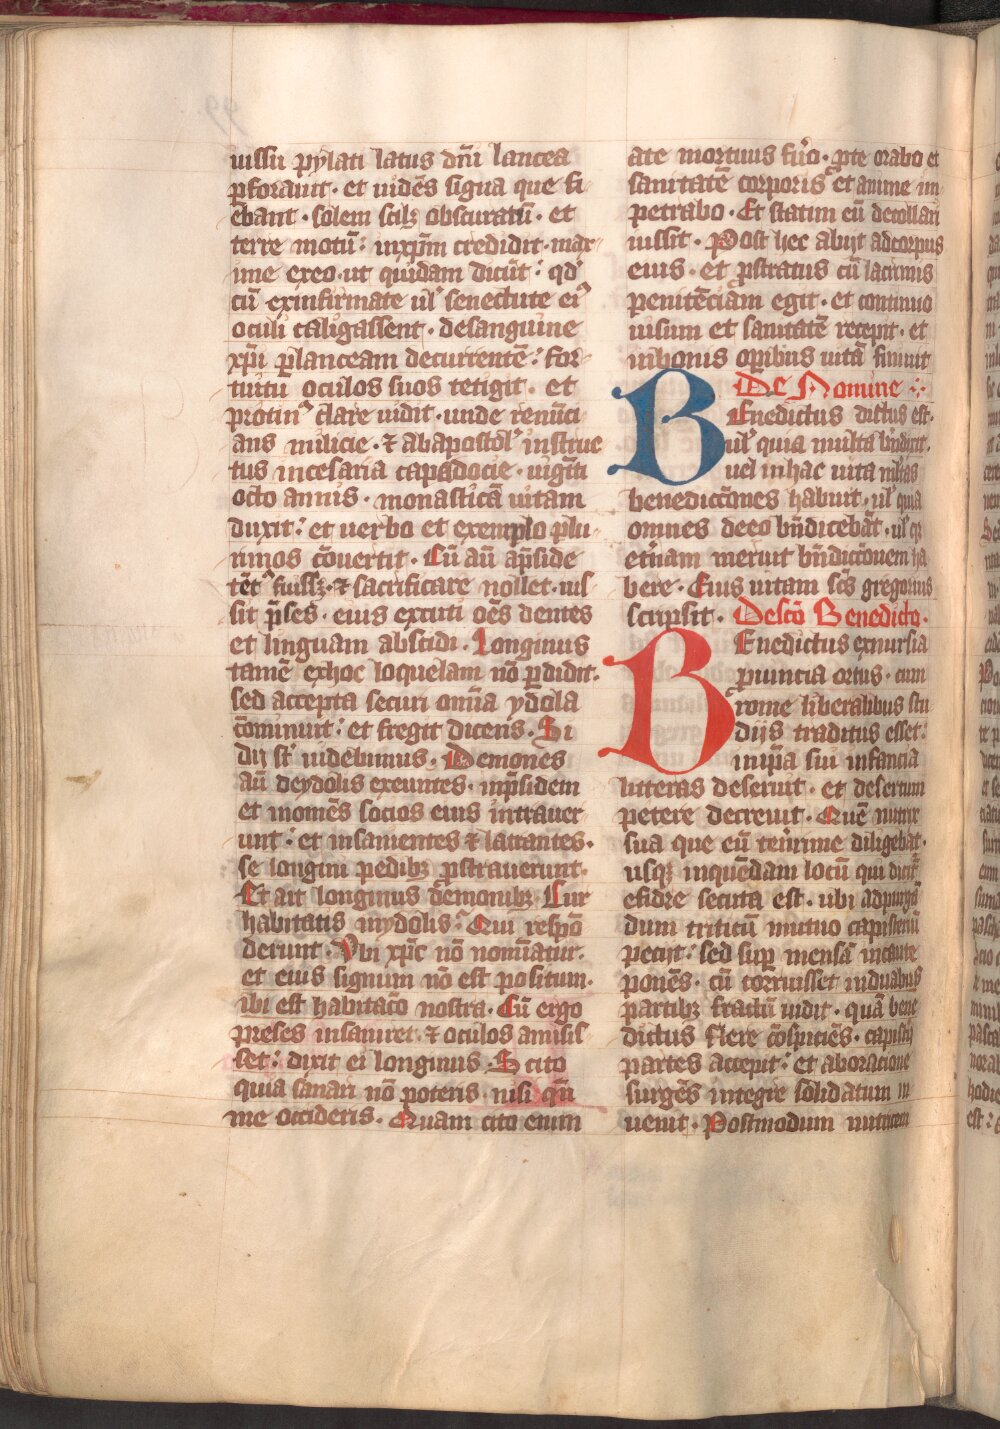 uissu pylati latus dñi lancea
ꝑforauit · et uidēs signa que fi-
ebant · solem scilꝫ obscuratū · et
terre motū : inxp̄m credidit · max-
ime exeo · ut quidam dicūt : qđ
cū exinfirmate ul̛ senectute eiꝰ
oculi caligassent · desanguine
xp̄i ꝑlanceam decurrentē : for-
tuitu oculos suos tetigit · et
protinꝰ clare uidit · unde renūci-
ans milicie · ⁊ abapostol̛ instruc
tus incesaria capadocie · uigīti
octo annis · monasticā uitam
duxit : et uerbo et exemplo plu-
rimos ꝯ̄uertit · Cū aū ap̄side
tētꝰ fuissꝫ · ⁊ sacrificare nollet · ius
sit p̄ses · eius excuti oēs dentes
et linguam abscidi · Longinus
tamē exhoc loquelam nō ꝑdidit ·
sed accepta securi omīa ydola
cōminuit : et fregit dicens · Si
dij st̄ uidebimus · Demones
aū deydolis exeuntes · inp̄sidem
et inomēs socios eius intrauer
unt : et insanientes ⁊ latrantes ·
se longini pedibꝫ ꝓstrauerunt ·
Et ait longinus demonibꝫ · Cur
habitatis inydolis : Qui respō
derunt · Vbi xp̄c nō nomīatur ·
et eius signum nō est positum ·
ibi est habitatō nostra · Cū ergo
preses insaniret · ⁊ oculos amisis
set : dixit ei longinus · Scito
quia sanari nō poteris · nisi qn̄
me occideris · Quam cito enim
ate mortuus fu̾o · ꝓte orabo et
sanitatē corporis et anime im
petrabo · Et statim eū decollari
iussit · Post hec abijt adcorpus
eius · et ꝓstratus cū lacrimis
penitēciam egit · et continuo
uisum et sanitatē recepit · et
inbonis oꝑibus uitā finiuit
De Nomine
Benedictus dictus est ·
ul̛ quia multa bn̄dixit ·
uel inhac uita ml̛tas
benedictōnes habuit · ul̛ quia
omnes deeo bn̄dicebāt · ul̛ qꝫ
et̾nam meruit bn̄dictōnem ha
bere · Eius uitam scs̄ gregorius
scripsit · Descō Benedicto ·
Benedictus exnursia
ꝓuincia ortus · cum
rome liberalibus stu
dijs traditus esset :
inip̄a sui infancia
litteras deseruit · et desertum
petere decreuit · Quē nutrix
sua que eū ten̾rime diligebat ·
usqꝫ inquēdam locū qui dicit̾
efidre secuta est · ubi adpurgā
dum triticū mutuo capisteriū
pecijt : sed suꝑ mensā incaute
ponēs · cū corruisset induabus
partibꝫ fractū uidit · quā bene
dictus flere cōspiciēs · capisterij
partes accepit : et aboracione
surgēs integre solidatum in
uenit · Postmodum nutricem